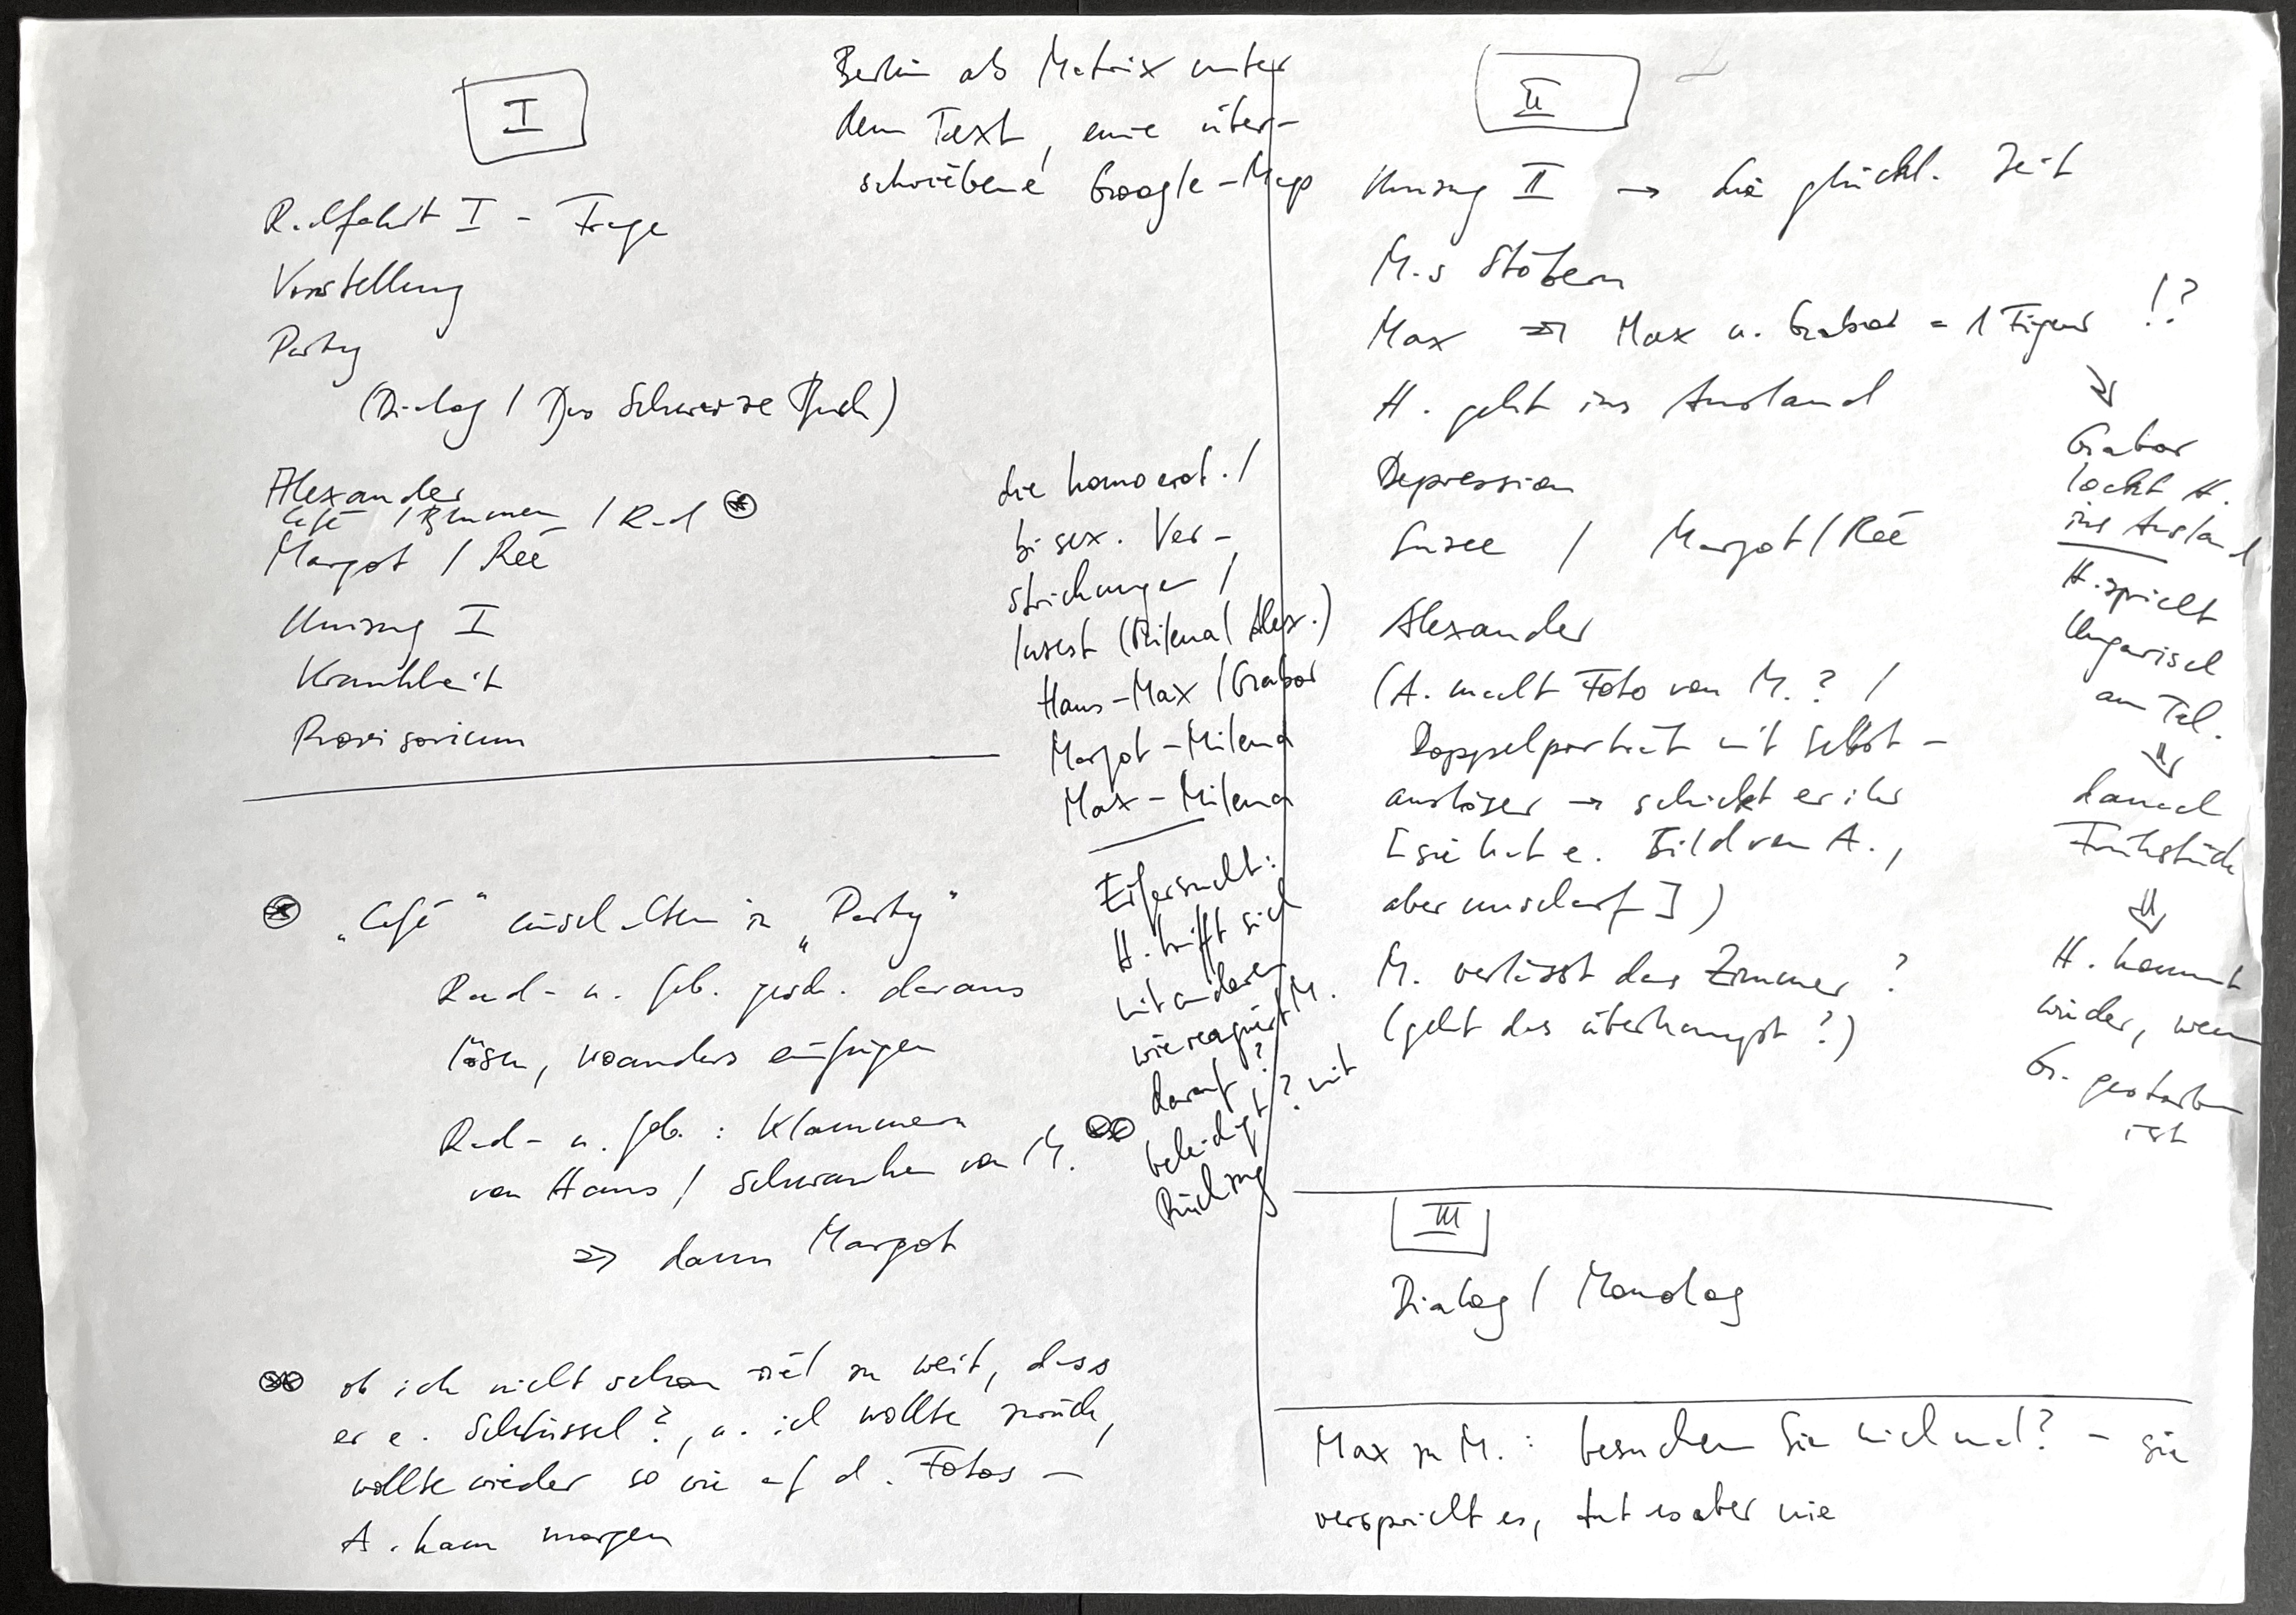 Berlin als Matrix unter
dem Text, eine über-
schriebene Google-Map
I
Radfahrt I - Frage
Vorstellung
Party
(Dialog / Das Schwarze Buch)
Alexander
Café / Blumen / Rad ⊛
Margot / Reé
Umzug I
Krankheit
Provisorium
die homoerot. /
bisex. Ver-
strickungen /
Inzest (Milena / Alex.)
Hans-Max / Gabor
Margot - Milena
Max - Milena
Eifersucht:
H. trifft sich
mit anderen
wie reagiert M.
darauf?
beleidigt? mit
Rückzug
⊛ „Café" einschalten in „Party"
Rad- u. Geb. gesch. daraus
lösen, woanders einfügen
Rad- u. Geb. : Klammern
von Hans / Schwanken von M. ⊛⊛
⇒ dann Margot
⊛⊛ ob ich nicht schon viel zu weit, dass
er e. Schlüssel?, u. ich wollte zurück,
wollte wieder so wie auf d. Fotos -
A. kam morgen
II
Umzug II → die glückl. Zeit
M.s Stöbern
Max ⇒ Max u. Gabor = 1 Figur !?
H. geht ins Ausland
Depression
Susee / Margot / Reé
Alexander
(A. macht Foto von M.? /
Doppelporträt mit Selbst-
auslöser → schickt er ihr
[sie hat e. Bild von A.,
aber unscharf])
M. verlässt das Zimmer?
(geht das überhaupt?)
⇓
Gabor
lockt H.
ins Ausland
H. spricht
Ungarisch
am Tel.
⇓
danach
Frühstück
⇓
H. kommt
wieder, wenn
G. gestorben
ist
III
Dialog / Monolog
Max zu M.: besuchen Sie mich mal? - sie
verspricht es, tut es aber nie